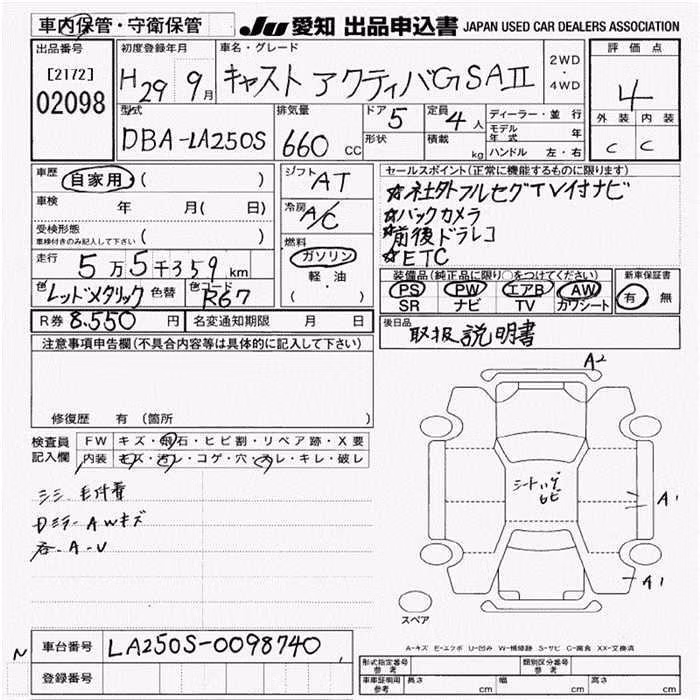 車内保管・守衛保管
JU 愛知 出品申込書 JAPAN USED CAR DEALERS ASSOCIATION
出品番号
[2172]
02098
初度登録年月
H29 9月
車名・グレード
キャスト アクティバG SAⅡ
2WD
・
4WD
評価点
4
外装 内装
C C
型式
DBA-LA250S
排気量
660 CC
ドア 5
形状
定員 4人
積載 kg
ディーラー・並行
モデル年式 年
ハンドル 左・右
車歴
自家用 ( )
車検 年 月( 日)
受検形態
車検付きのみ記入して下さい ( )
走行
5万5千359km
色 レッドメタリック 色替 色コード R67
シフト AT
冷房 A/C
燃料
ガソリン
軽・油
( )
セールスポイント(正常に機能するものに限ります)
☆社外フルセグTV付ナビ
☆バックカメラ
☆前後ドラレコ
☆ETC
装備品(純正品に限り○をつけてください)
PS PW エアB AW
SR ナビ TV カワシート
新車保証書
有 無
R券 8.550 円 名変通知期限 月 日
後日品
取扱説明書
注意事項申告欄(不具合内容等は具体的に記入して下さい)
修復歴 有 (箇所 )
検査員
記入欄
FW キズ・飛石・ヒビ割・リペア跡・X要
内装 キズ・汚レ・コゲ・穴・スレ・キレ・破レ
シミ 毛付着
Dミラー AWキズ
A-U
A2
シートハゲ
A1
A1
スペア
A-キズ E-エクボ U-凹み W-補修跡 S-サビ C-腐食 XX-交換済
N
車台番号 LA250S-0098740
登録番号
形式指定番号
参考
類別区分番号
参考
車庫証明用
参考
長さ cm 幅 cm 高さ cm